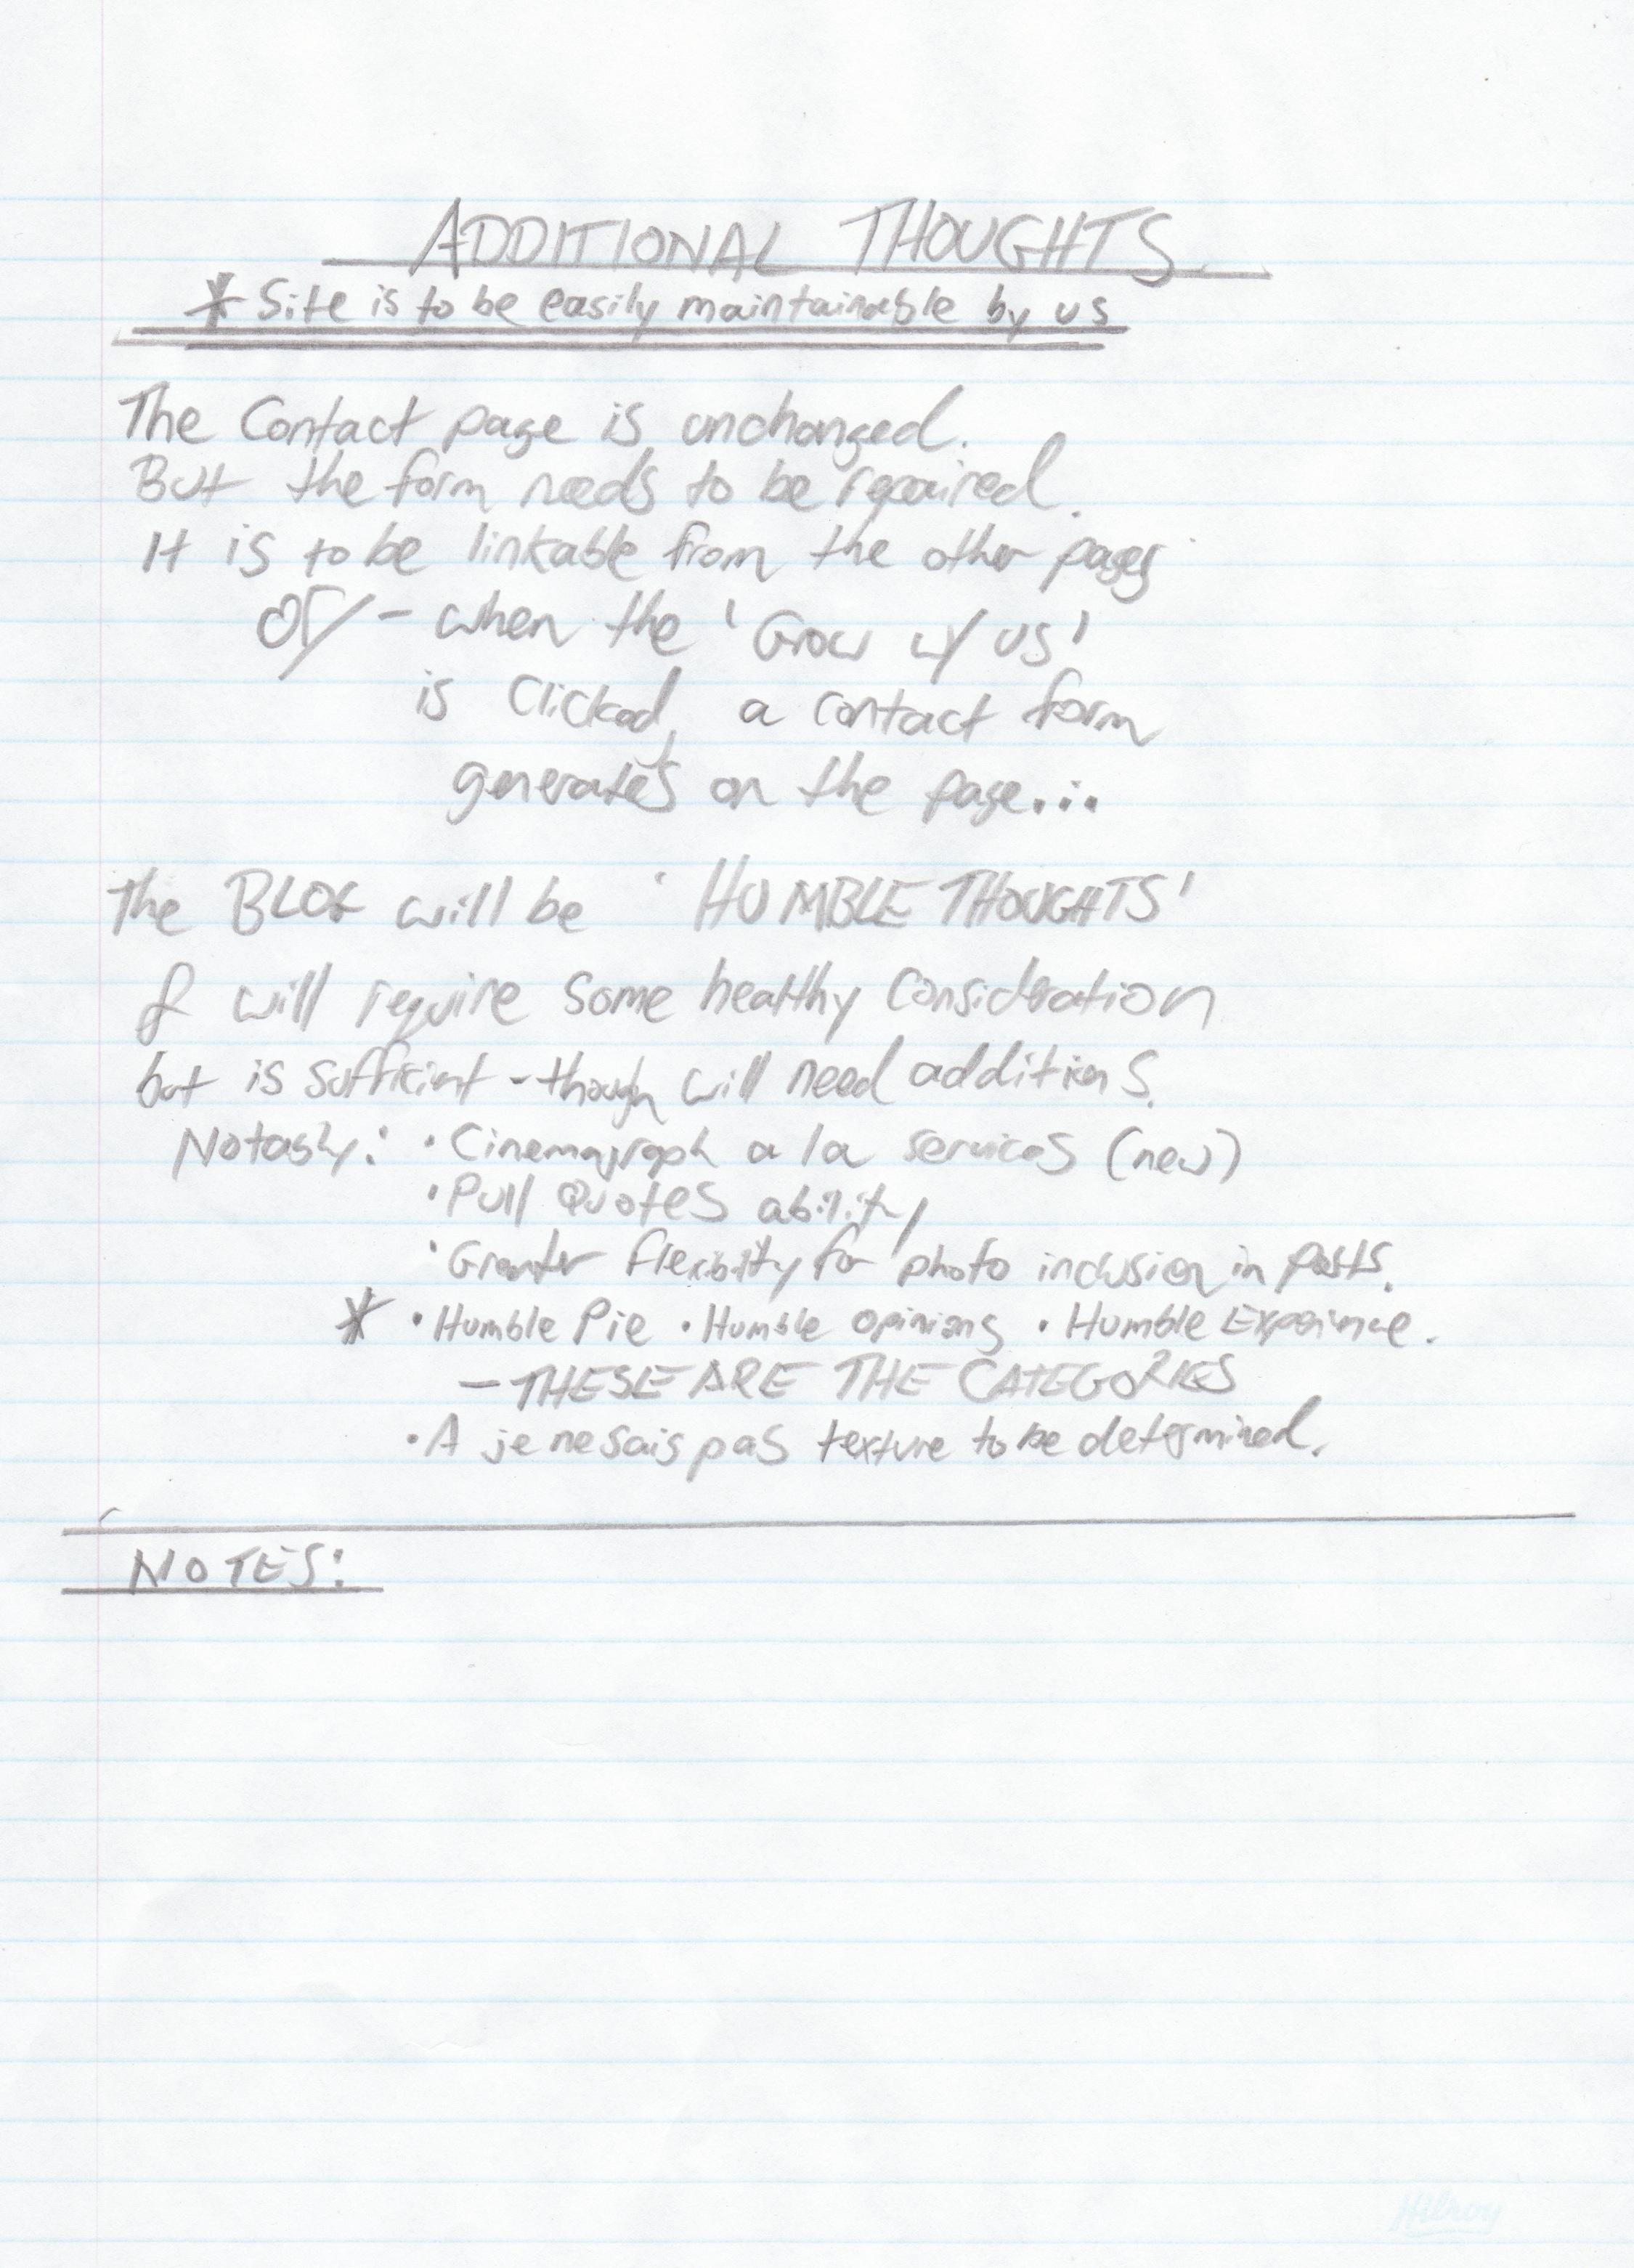 ADDITIONAL THOUGHTS
* Site is to be easily maintainable by us
The Contact page is unchanged.
But the form needs to be repaired.
It is to be linkable from the other pages
or/ - when the 'Grow w/ us'
is clicked, a contact form
generates on the page...
The BLOG will be 'HUMBLE THOUGHTS'
& will require some healthy consideration
but is sufficient - though will need additions.
Notably: • Cinemagraph a la services (new)
• Pull Quotes ability
• Greater flexibility for photo inclusion in posts.
* • Humble Pie • Humble opinions • Humble Experience.
- THESE ARE THE CATEGORIES
• A je ne sais pas texture to be determined.
NOTES:
Hilroy